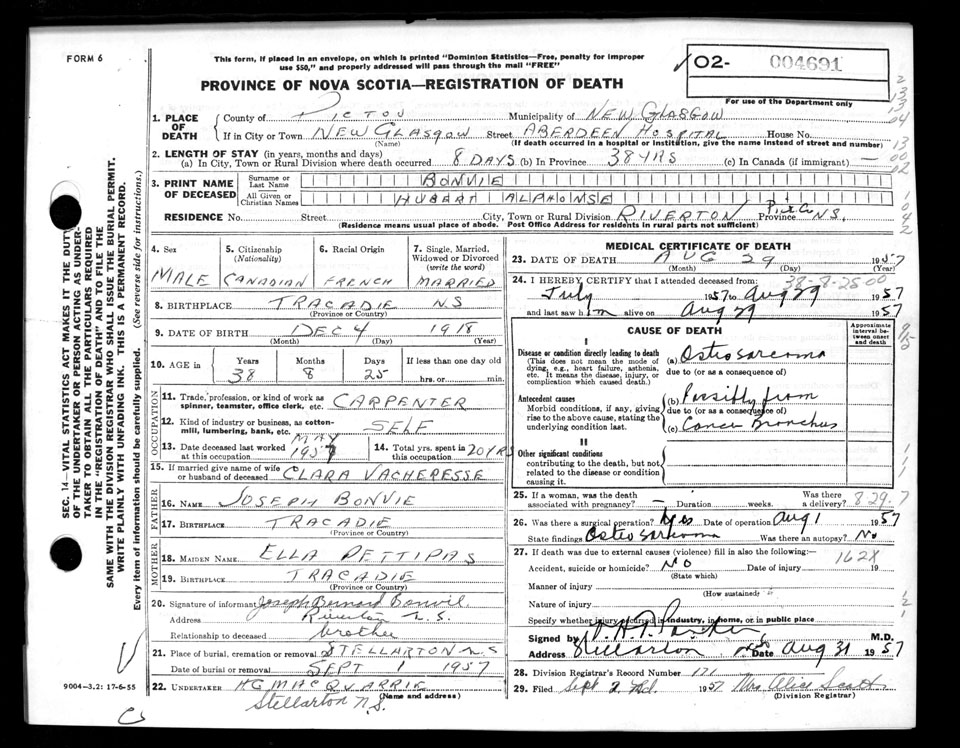 FORM 6
This form, if placed in an envelope, on which is printed "Dominion Statistics—Free, penalty for improper
use $50," and properly addressed will pass through the mail "FREE"
O2- 004691
For use of the Department only
PROVINCE OF NOVA SCOTIA—REGISTRATION OF DEATH
1. PLACE OF DEATH
County of PICTOU Municipality of NEW GLASGOW
If in City or Town NEW GLASGOW Street ABERDEEN HOSPITAL House No.
(Name) (If death occurred in a hospital or institution, give the name instead of street and number)
2. LENGTH OF STAY (in years, months and days)
(a) In City, Town or Rural Division where death occurred 8 DAYS (b) In Province 38 YRS (c) In Canada (if immigrant) —
3. PRINT NAME OF DECEASED
Surname or Last Name BONVIE
All Given or Christian Names HUBERT ALPHONSE
RESIDENCE No. Street City, Town or Rural Division RIVERTON Pict Co Province N.S.
(Residence means usual place of abode. Post Office Address for residents in rural parts not sufficient)
4. Sex MALE
5. Citizenship (Nationality) CANADIAN
6. Racial Origin FRENCH
7. Single, Married, Widowed or Divorced (write the word) MARRIED
8. BIRTHPLACE TRACADIE NS
(Province or Country)
9. DATE OF BIRTH DEC 4 1918
(Month) (Day) (Year)
10. AGE in Years 38 Months 8 Days 25 If less than one day old hrs. or min.
OCCUPATION
11. Trade, profession, or kind of work as spinner, teamster, office clerk, etc. CARPENTER
12. Kind of industry or business, as cotton-mill, lumbering, bank, etc. SELF
13. Date deceased last worked at this occupation MAY 1957
14. Total yrs. spent in this occupation 20 YRS
15. If married give name of wife or husband of deceased CLARA VACHERESSE
FATHER
16. NAME JOSEPH BONVIE
17. BIRTHPLACE TRACADIE
(Province or Country)
MOTHER
18. MAIDEN NAME ELLA PETTIPAS
19. BIRTHPLACE TRACADIE
(Province or Country)
20. Signature of informant Joseph Bernard Bonvie
Address Riverton N.S.
Relationship to deceased brother
21. Place of burial, cremation or removal STELLARTON N.S
Date of burial or removal SEPT 1 1957
22. UNDERTAKER H.G MACQUARRIE
(Name and address)
Stellarton N.S.
MEDICAL CERTIFICATE OF DEATH
23. DATE OF DEATH AUG 29 1957
(Month) (Day) (Year)
24. I HEREBY CERTIFY that I attended deceased from:
July 1957 to Aug 29 1957
and last saw him alive on Aug 29 1957
CAUSE OF DEATH
Approximate interval between onset and death
I
Disease or condition directly leading to death
(This does not mean the mode of dying, e.g., heart failure, asthenia, etc. It means the disease, injury, or complication which caused death.)
(a) Osteo sarcoma
due to (or as a consequence)
Antecedent causes
Morbid conditions, if any, giving rise to the above cause, stating the underlying condition last.
(b) Possibly from
due to (or as a consequence)
(c) Cancer Bronchus
II
Other significant conditions
contributing to the death, but not related to the disease or condition causing it.
25. If a woman, was the death associated with pregnancy? — Duration weeks. Was there a delivery?
829.7
26. Was there a surgical operation? Yes Date of operation Aug 1 1957
State findings Osteo sarcoma Was there an autopsy? No
27. If death was due to external causes (violence) fill in also the following:—
162X
Accident, suicide or homicide? No Date of injury 19
(State which)
Manner of injury
(How sustained)
Nature of injury
Specify whether injury occurred in industry, in home, or in public place
Signed by M.D.
Address Stellarton Date Aug 31 1957
28. Division Registrar's Record Number 171
29. Filed Sept 2nd 1957 Mrs Alice Scott
(Division Registrar)
SEC. 14—VITAL STATISTICS ACT MAKES IT THE DUTY
OF THE UNDERTAKER OR PERSON ACTING AS UNDER-
TAKER TO OBTAIN ALL THE PARTICULARS REQUIRED
IN THE "REGISTRATION OF DEATH" AND TO FILE THE
SAME WITH THE DIVISION REGISTRAR WHO SHALL ISSUE THE BURIAL PERMIT.
WRITE PLAINLY WITH UNFADING INK. THIS IS A PERMANENT RECORD.
Every item of information should be carefully supplied. (See reverse side for instructions.)
9004-3.2: 17-6-55